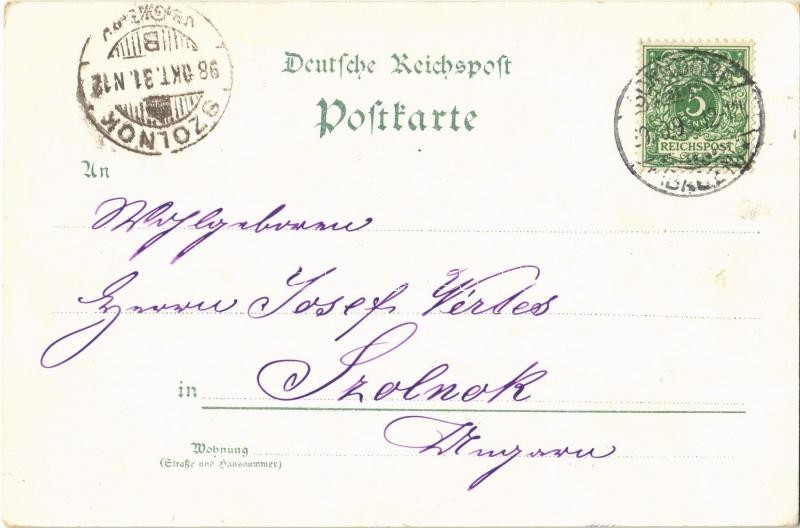 SZOLNOK
98 OKT. 31. N12
B
Deutsche Reichspost
Postkarte
5
REICHSPOST
An
Wohlgeboren
Herrn Josef Vértes
in Szolnok
Ungarn
Wohnung
(Straße und Hausnummer)